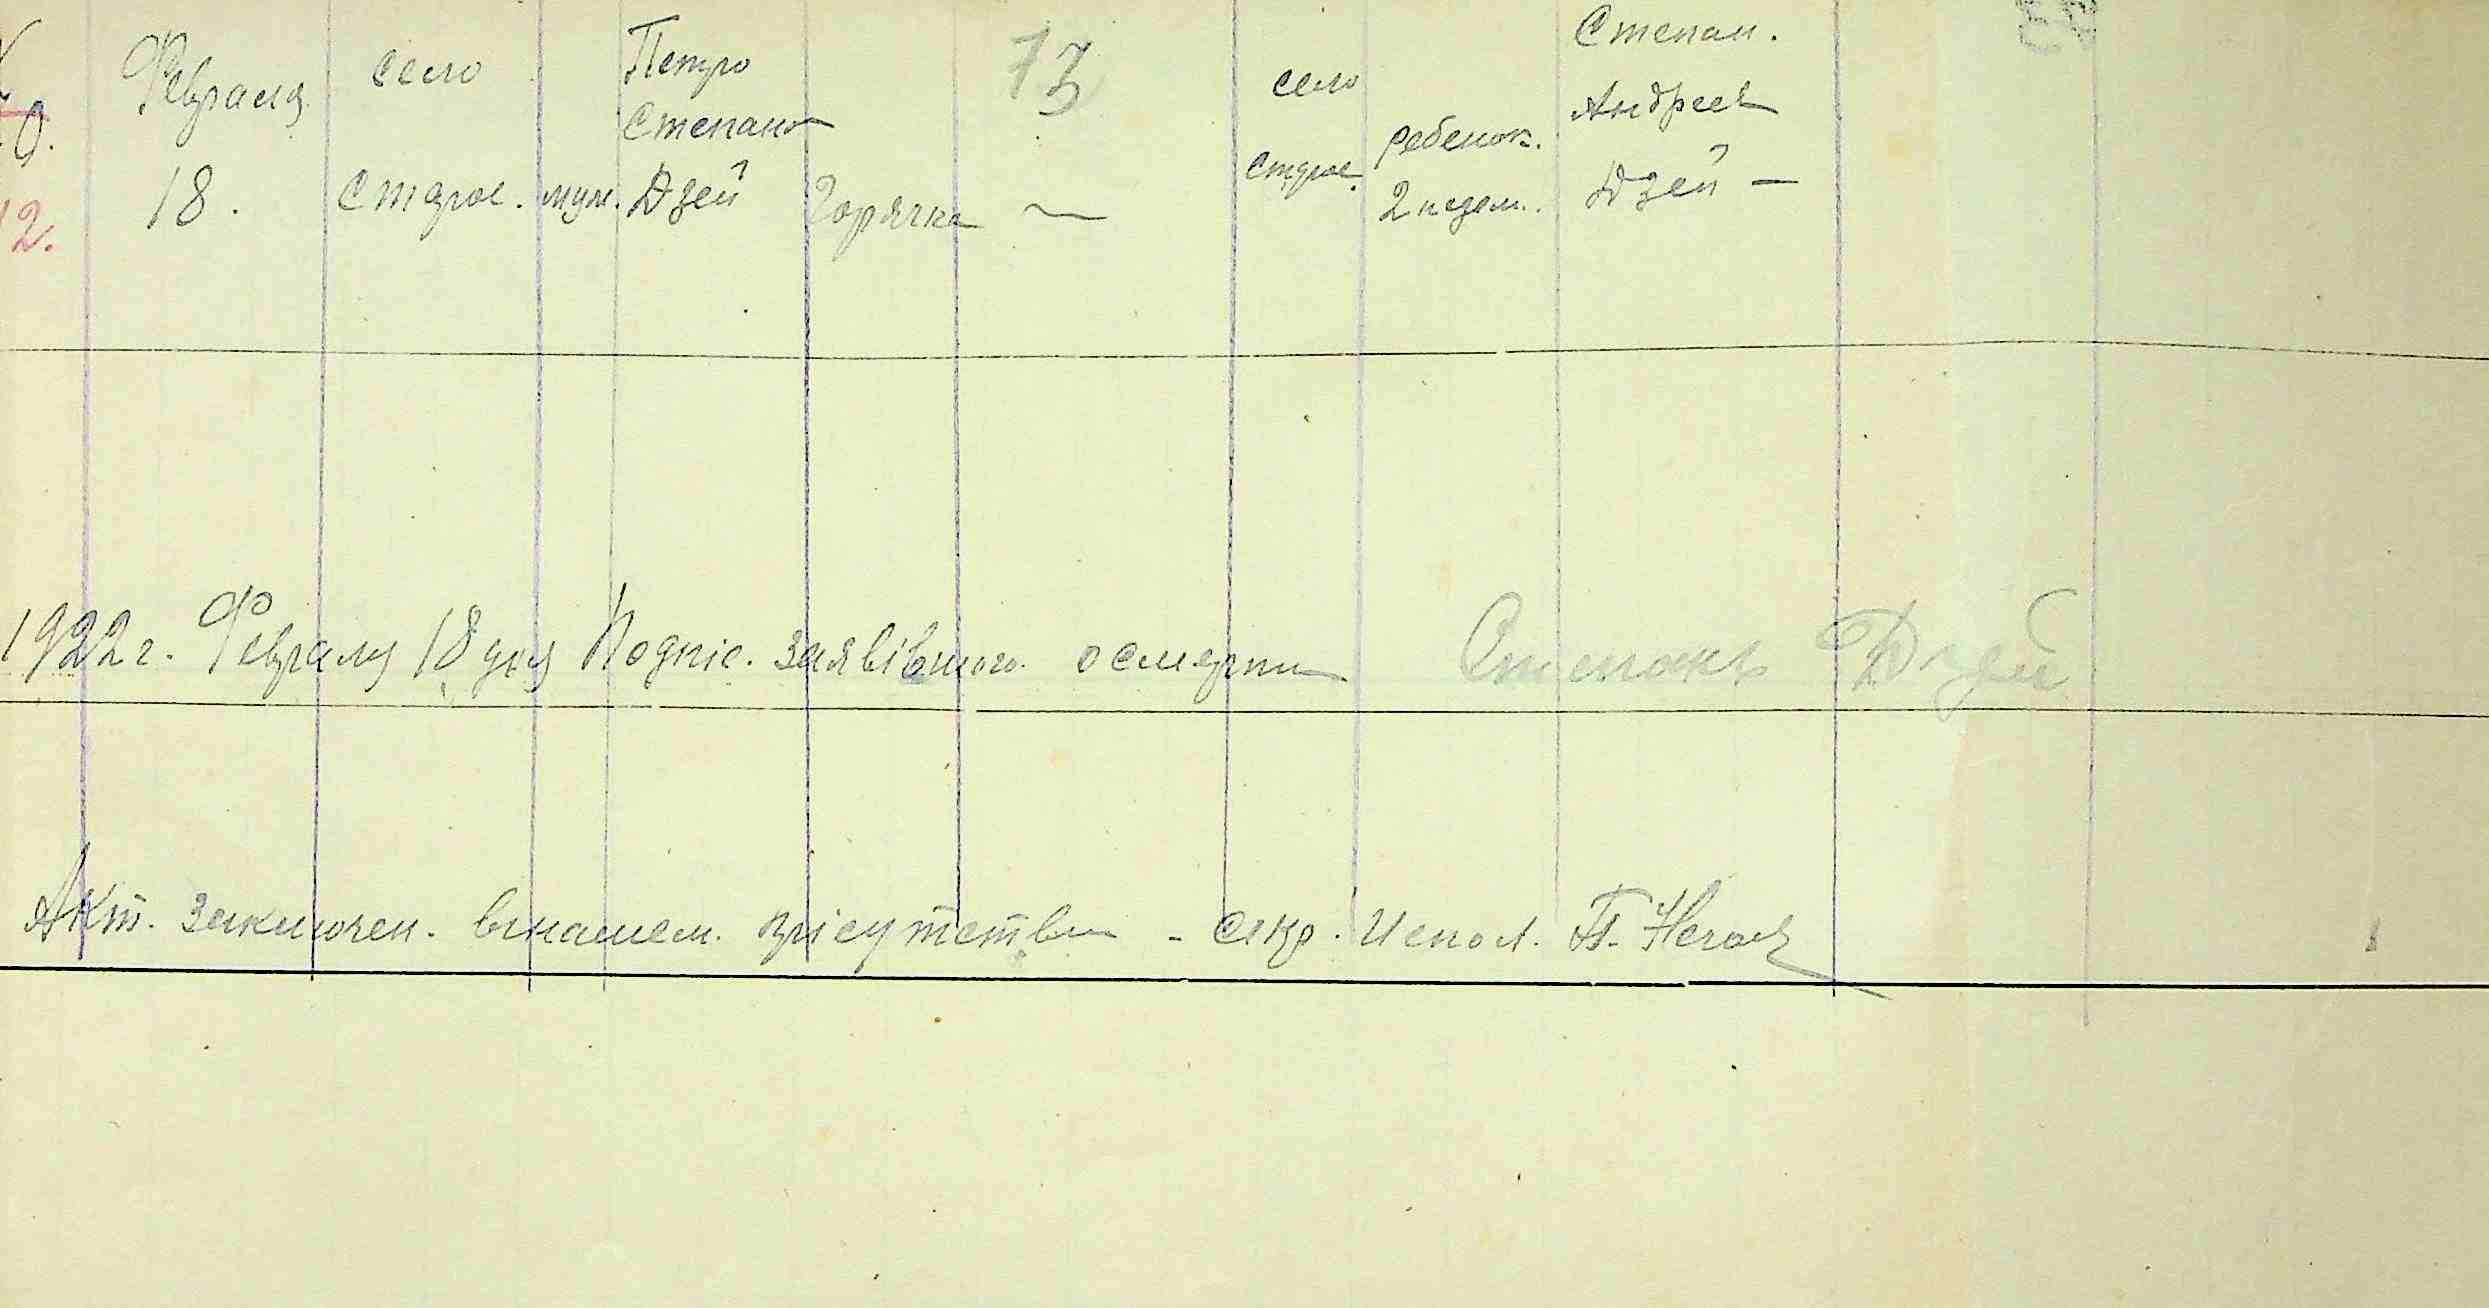 Февраля
18.
село
Старое.
муж.
Петро
Степанов
Дзей
Горячка
73
село
Старое.
ребенок.
2 недел.
Степан.
Андреев
Дзей —
0.
12.
1922 г. Февраля 18 дня Подпіс. заявівшого. о смерти Степанъ Дзей
Акт. заключен. внашем. прісутстви - секр. Испол. П.